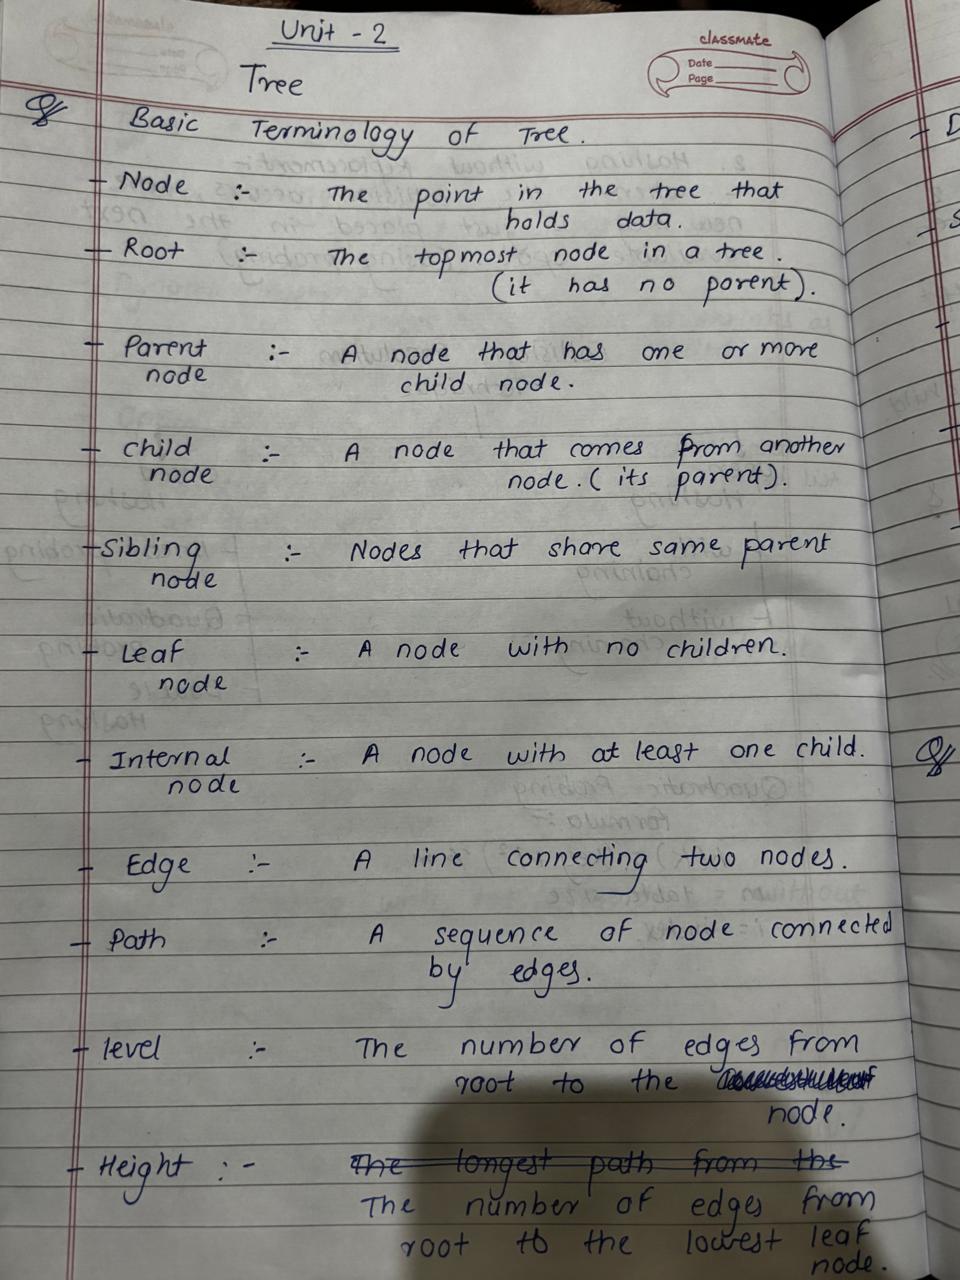 Unit - 2
classmate
Date
Page
Tree
Basic Terminology of Tree.
- Node :- The point in the tree that
holds data.
- Root :- The topmost node in a tree.
(it has no porent).
- Parent :- A node that has one or more
node child node.
- child :- A node that comes from another
node node. (its parent).
- Sibling :- Nodes that share same parent
node
- Leaf :- A node with no children.
node
- Internal :- A node with at least one child.
node
- Edge :- A line connecting two nodes.
- Path :- A sequence of node connected
by edges.
- level :- The number of edges from
root to the
node.
- Height :- The longest path from the
The number of edges from
root to the lowest leaf
node.